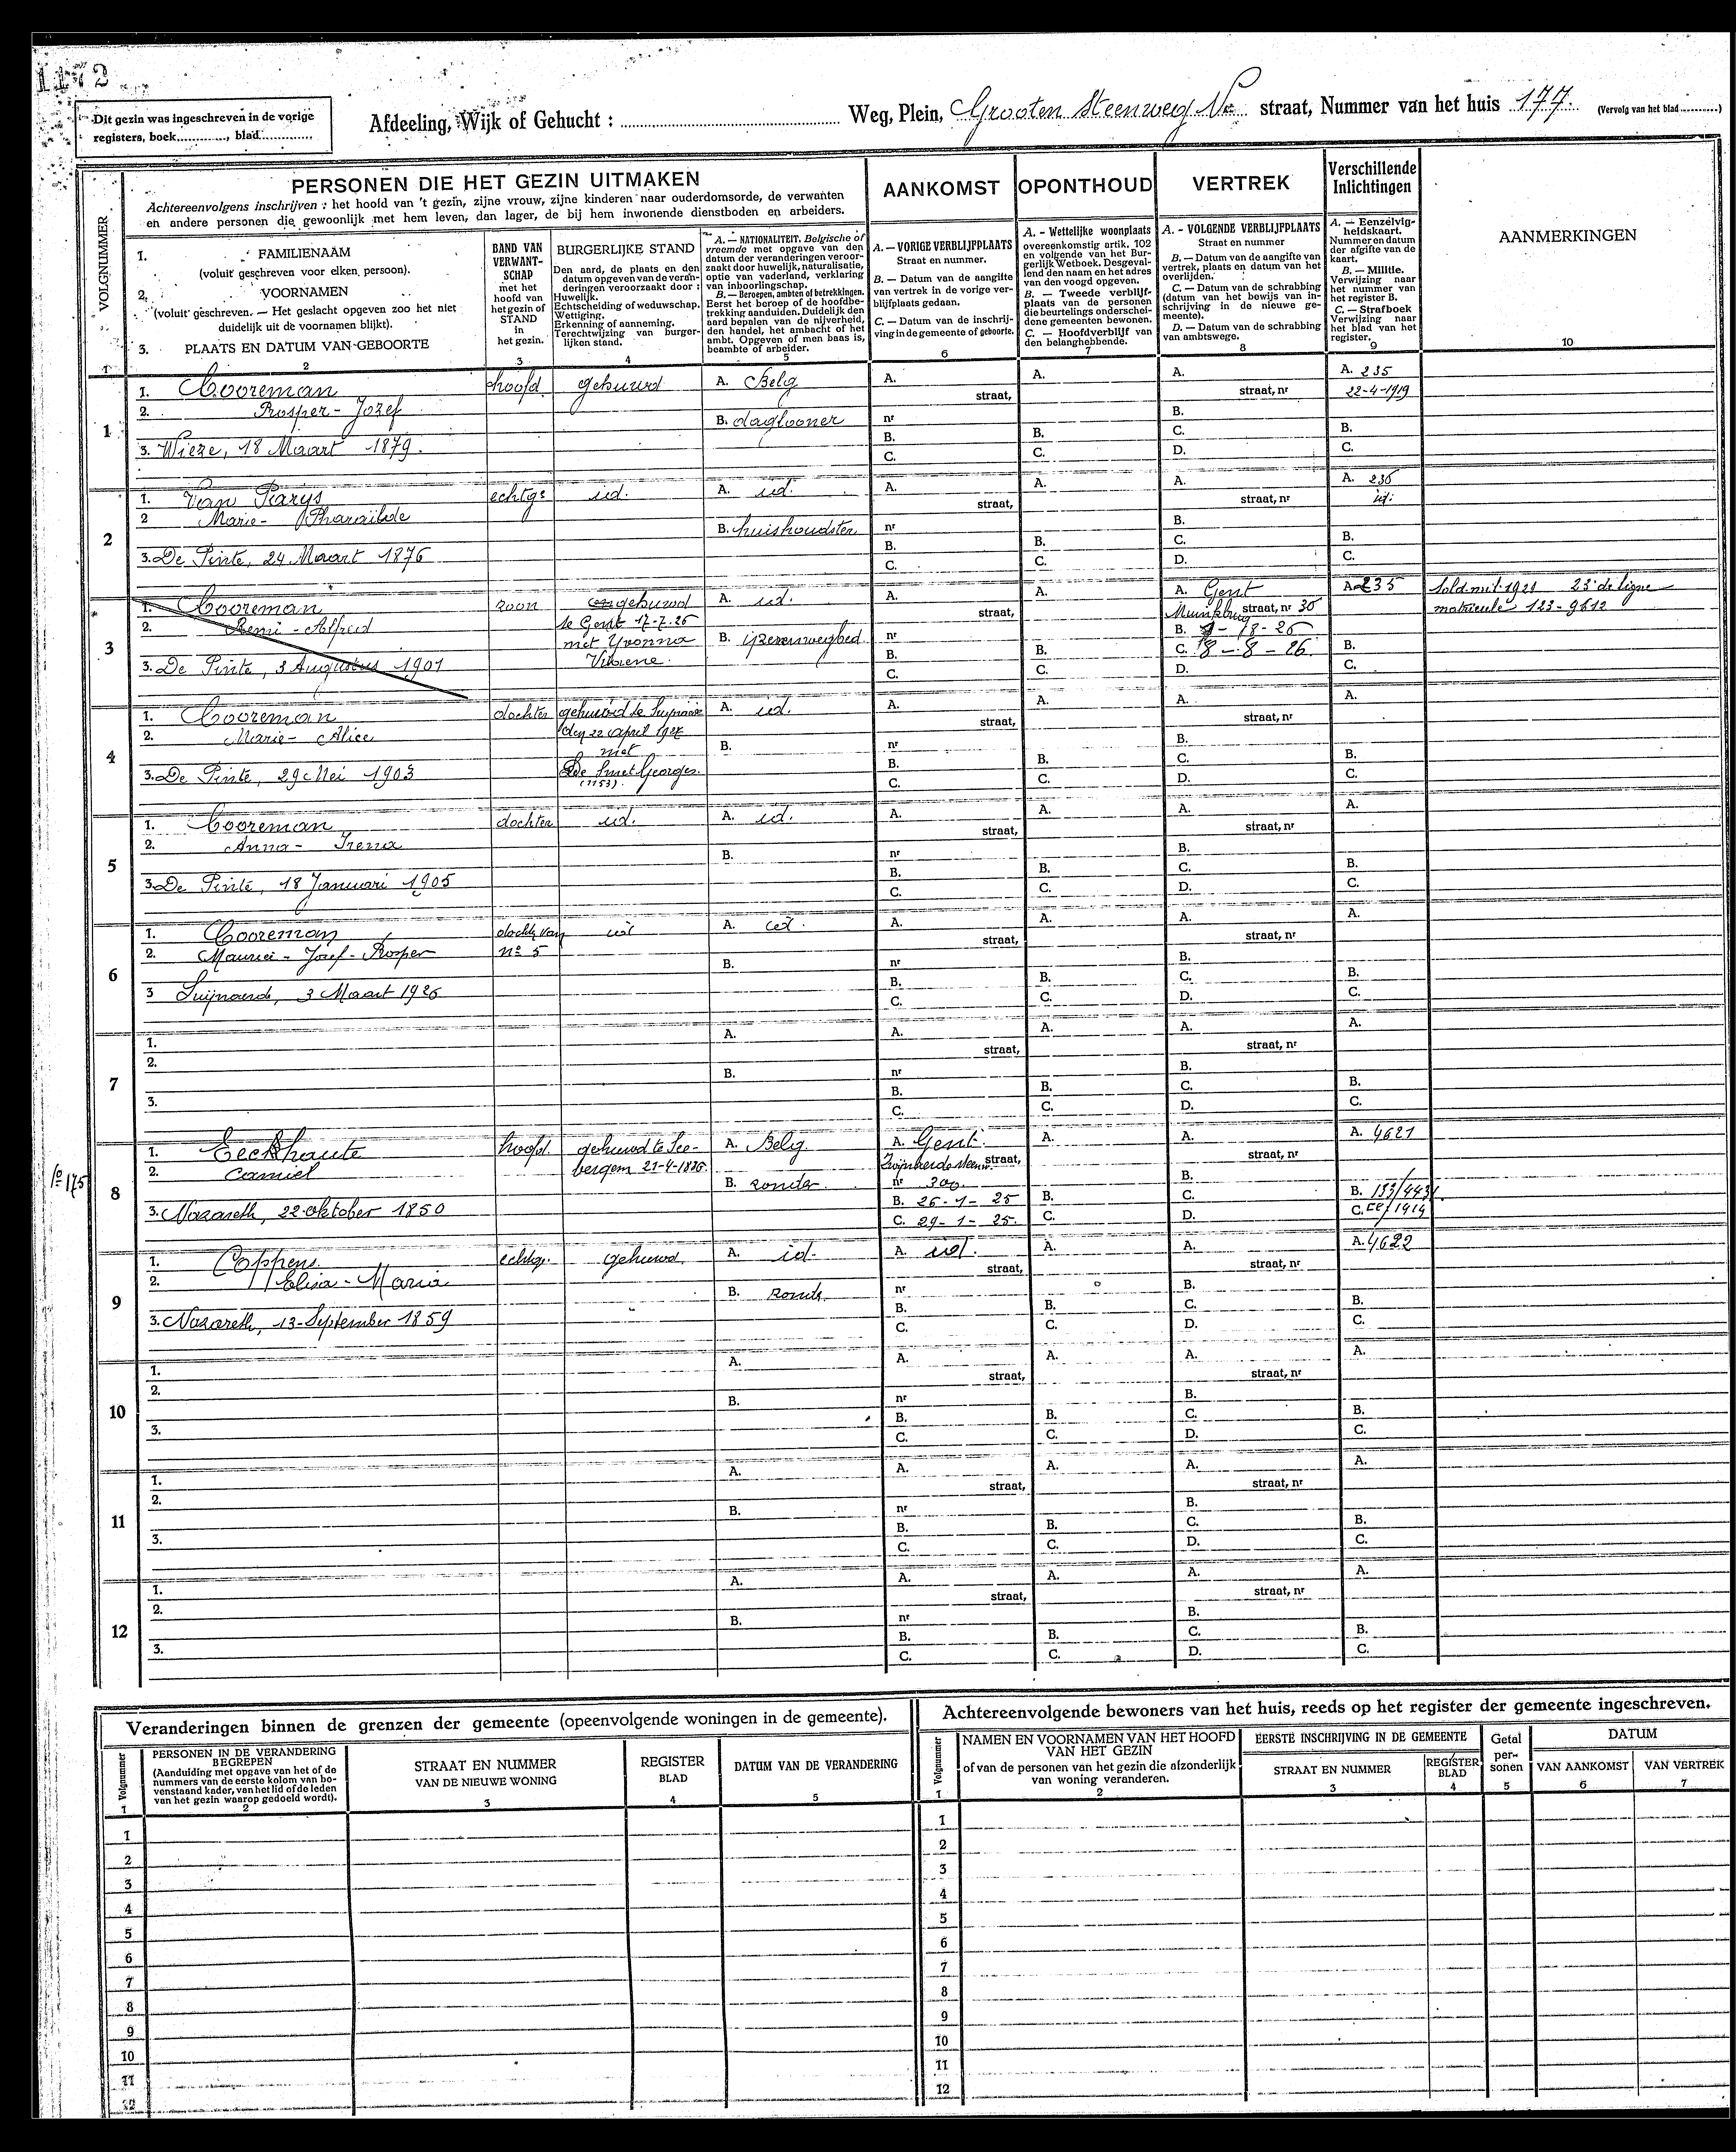 1172
Dit gezin was ingeschreven in de vorige
registers, boek............, blad..............
Afdeeling, Wijk of Gehucht : ............ Weg, Plein, Grooten Steenweg Nr straat, Nummer van het huis 177. (Vervolg van het blad ............)
VOLGNUMMER
PERSONEN DIE HET GEZIN UITMAKEN
Achtereenvolgens inschrijven : het hoofd van 't gezin, zijne vrouw, zijne kinderen naar ouderdomsorde, de verwanten
en andere personen die gewoonlijk met hem leven, dan lager, de bij hem inwonende dienstboden en arbeiders.
1. FAMILIENAAM
(voluit geschreven voor elken persoon).
2. VOORNAMEN
(voluit geschreven. — Het geslacht opgeven zoo het niet
duidelijk uit de voornamen blijkt).
3. PLAATS EN DATUM VAN GEBOORTE
2
BAND VAN
VERWANT-
SCHAP
met het
hoofd van
het gezin of
STAND
in
het gezin.
3
BURGERLIJKE STAND
Den aard, de plaats en den
datum opgeven van de veran-
deringen veroorzaakt door :
Huwelijk.
Echtscheiding of weduwschap.
Wettiging.
Erkenning of aanneming.
Terechtwijzing van burger-
lijken stand.
4
A. — NATIONALITEIT. Belgische of
vreemde met opgave van den
datum der veranderingen veroor-
zaakt door huwelijk, naturalisatie,
optie van vaderland, verklaring
van inboorlingschap.
B. — Beroepen, ambten of betrekkingen.
Eerst het beroep of de hoofdbe-
trekking aanduiden. Duidelijk den
aard bepalen van de nijverheid,
den handel, het ambacht of het
ambt. Opgeven of men baas is,
beambte of arbeider.
5
AANKOMST
A. — VORIGE VERBLIJFPLAATS
Straat en nummer.
B. — Datum van de aangifte
van vertrek in de vorige ver-
blijfplaats gedaan.
C. — Datum van de inschrij-
ving in de gemeente of geboorte.
6
OPONTHOUD
A. - Wettelijke woonplaats
overeenkomstig artik. 102
en volgende van het Bur-
gerlijk Wetboek. Desgeval-
lend den naam en het adres
van den voogd opgeven.
B. — Tweede verblijf-
plaats van de personen
die beurtelings onderschei-
dene gemeenten bewonen.
C. — Hoofdverblijf van
den belanghebbende.
7
VERTREK
A. - VOLGENDE VERBLIJFPLAATS
Straat en nummer
B. — Datum van de aangifte van
vertrek, plaats en datum van het
overlijden.
C. — Datum van de schrabbing
(datum van het bewijs van in-
schrijving in de nieuwe ge-
meente).
D. — Datum van de schrabbing
van ambtswege.
8
Verschillende
Inlichtingen
A. — Eenzelvig-
heldskaart.
Nummer en datum
der afgifte van de
kaart.
B. — Militie.
Verwijzing naar
het nummer van
het register B.
C. — Strafboek
Verwijzing naar
het blad van het
register.
9
AANMERKINGEN
10
1
1. Cooreman hoofd gehuwd A. Belg A. straat, A. A. straat, nr A. 235
2. Prosper - Jozef B. daglooner nr B. 22-4-1919
3. Wieze, 18 Maart 1879. B. C. B. C. C. D. B. C.
2
1. Van Parys echtge id. A. id. A. straat, A. A. straat, nr A. 236
2 Marie - Pharaïlde B. huishoudster nr B. id.
3. De Pinte, 24 Maart 1876 B. C. B. C. C. D. B. C.
3
1. Cooreman zoon ongehuwd A. id. A. straat, A. A. Gent A. 235 Sold. mil. 1921 23e de ligne
2. Remi - Alfred te Gent 17-7-26 straat, nr 30 matricule 123-9612
met Yvonna B. nr B. 9-18-26
3. De Pinte, 3 Augustus 1901 B. C. B. C. C. 18-8-26. D. B. C.
4
1. Cooreman dochter gehuwd te A. id. A. straat, A. A. straat, nr A.
2. Marie - Alice den 22 april 1927
met B. nr B.
3. De Pinte, 29 Mei 1903 De Smet Georges. B. C. B. C. C. D. B. C.
(1153).
5
1. Cooreman dochter id. A. id. A. straat, A. A. straat, nr A.
2. Anna - Irena B. nr B.
3. De Pinte, 18 Januari 1905 B. C. B. C. C. D. B. C.
6
1. Cooreman van id A. id. A. straat, A. A. straat, nr A.
2. Maurice - Jozef - Prosper no 5 B. nr B.
3 3 Maart 1926 B. C. B. C. C. D. B. C.
7
1. A. A. straat, A. A. straat, nr A.
2. B. nr B.
3. B. C. B. C. C. D. B. C.
No 175
8
1. Eeckhaute hoofd. gehuwd te See- A. Belg A. Gent. A. A. straat, nr A. 4621
2. Camiel bergem 21-4-1886 straat,
B. nr 300. B.
3. Nazareth, 22 oktober 1850 B. 26-1-25 B. C. B. 133/4431.
C. 29-1-25. C. D. C.
9
1. Coppens echtge. gehuwd A. id. A. id. straat, A. A. straat, nr A. 4622
2. Elisa - Maria B. nr B.
3. Nazareth, 13 September 1859 B. C. B. C. C. D. B. C.
10
1. A. A. straat, A. A. straat, nr A.
2. B. nr B.
3. B. C. B. C. C. D. B. C.
11
1. A. A. straat, A. A. straat, nr A.
2. B. nr B.
3. B. C. B. C. C. D. B. C.
12
1. A. A. straat, A. A. straat, nr A.
2. B. nr B.
3. B. C. B. C. C. D. B. C.
Veranderingen binnen de grenzen der gemeente (opeenvolgende woningen in de gemeente).
Volgnummer
1
PERSONEN IN DE VERANDERING
BEGREPEN
(Aanduiding met opgave van het of de
nummers van de eerste kolom van bo-
venstaand kader, van het lid of de leden
van het gezin waarop gedoeld wordt).
2
STRAAT EN NUMMER
VAN DE NIEUWE WONING
3
REGISTER
BLAD
4
DATUM VAN DE VERANDERING
5
1
2
3
4
5
6
7
8
9
10
11
12
Achtereenvolgende bewoners van het huis, reeds op het register der gemeente ingeschreven.
Volgnummer
1
NAMEN EN VOORNAMEN VAN HET HOOFD
VAN HET GEZIN
of van de personen van het gezin die afzonderlijk
van woning veranderen.
2
EERSTE INSCHRIJVING IN DE GEMEENTE
STRAAT EN NUMMER
3
REGISTER
BLAD
4
Getal
per-
sonen
5
DATUM
VAN AANKOMST
6
VAN VERTREK
7
1
2
3
4
5
6
7
8
9
10
11
12